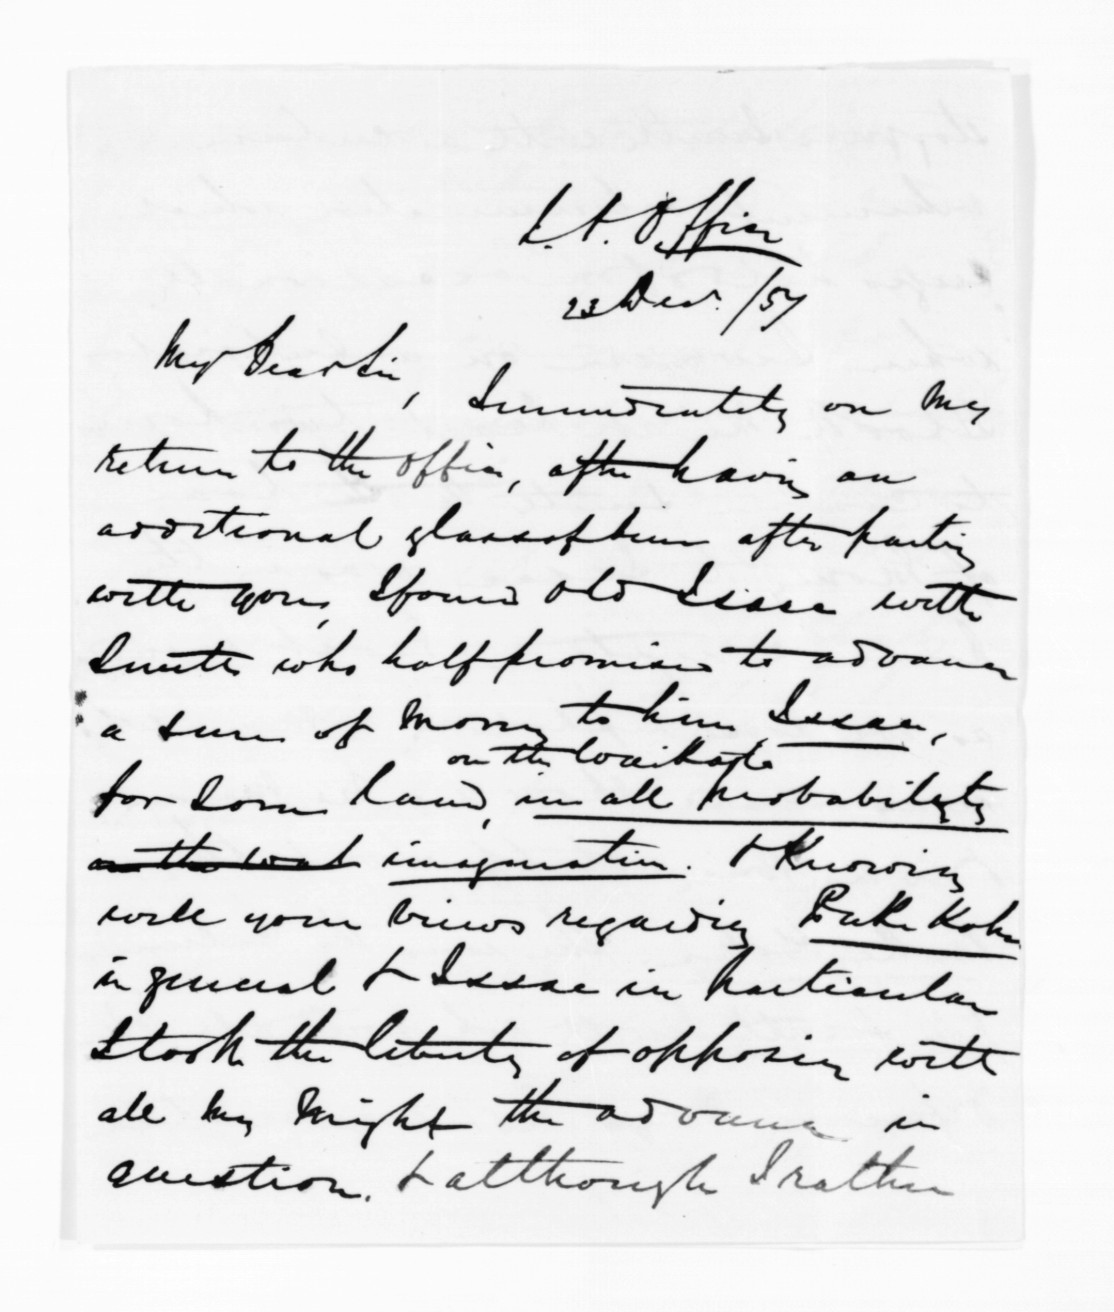 L. P. Office
23 Decr. /57
My Dear Sir, Immediately on my
return to the office, after having an
additional glass of beer after parting
with you, I found old Isaac with
Smith who half promised to advance
a sum of money to him Isaac,
on the Waikato
for some land, in all probability
on the Waik imagination. & Knowing
well your views regarding
in general & Isaac in particular
I took the liberty of opposing with
all my might the advance in
question. & although I rather